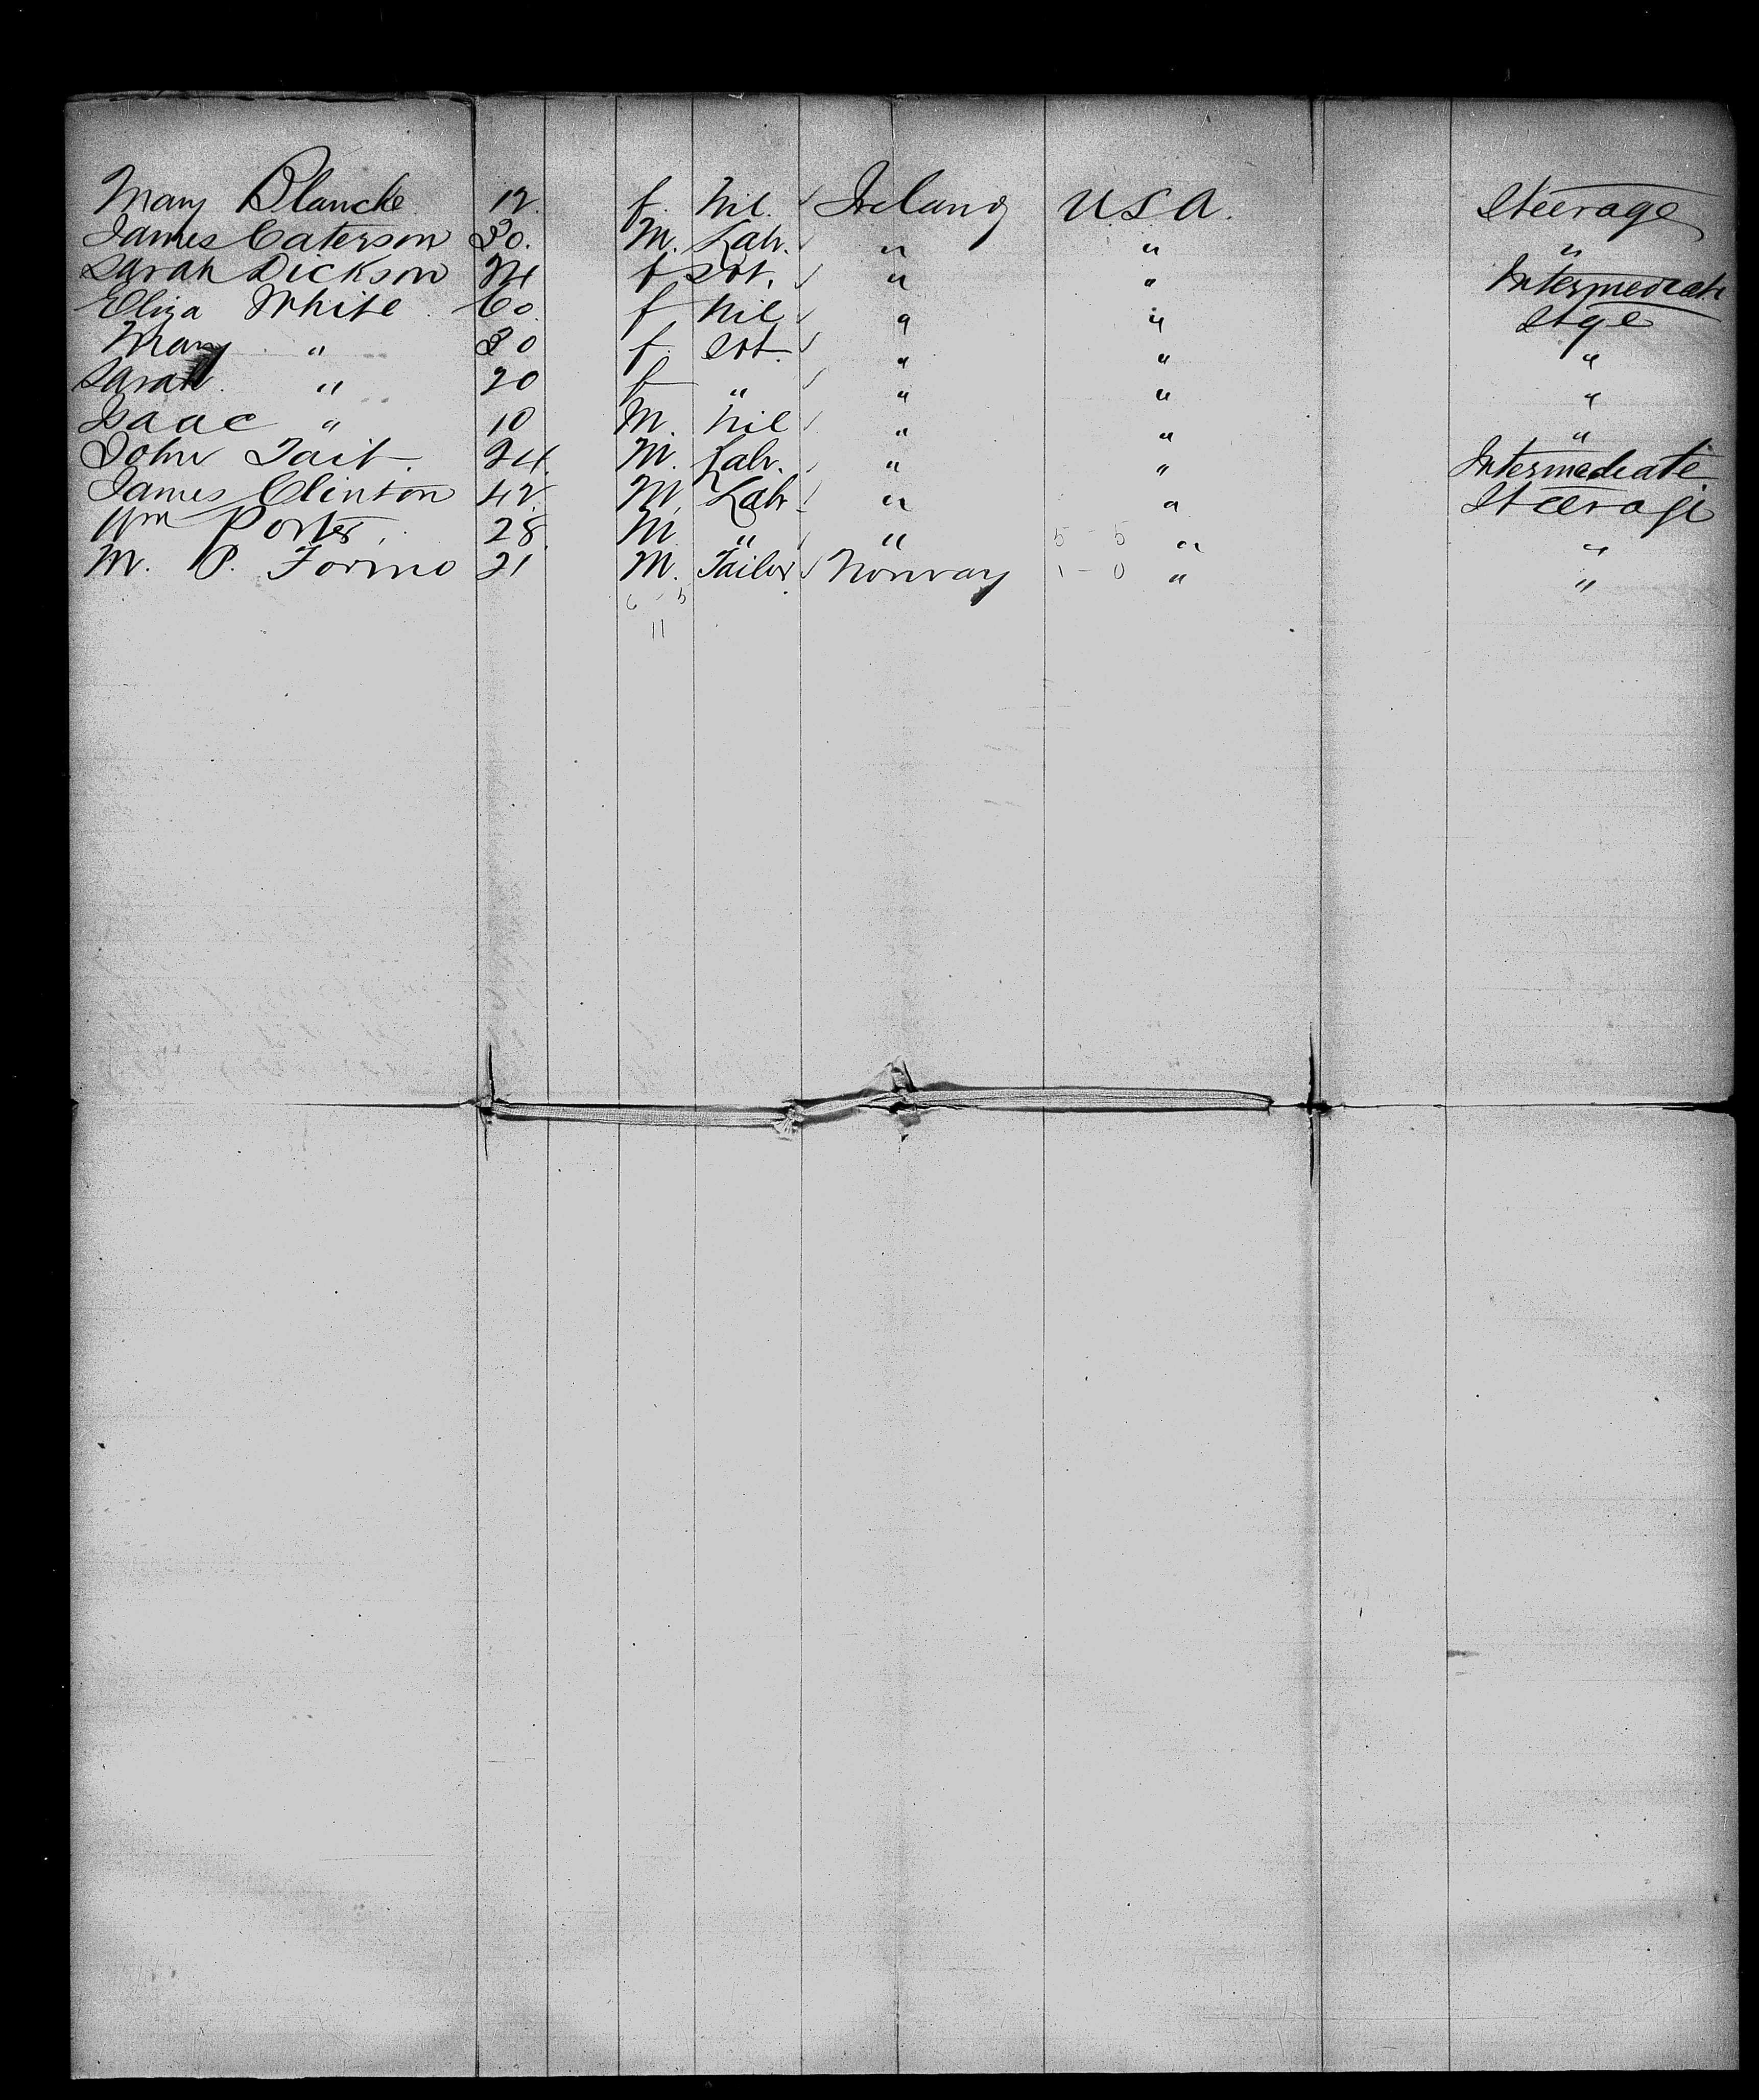 Mary Blancke 12 f. Nil. Ireland USA. Steerage
James Caterson 30. M. Labr. " " "
Sarah Dickson 24 f Spt. " " Intermediate
Eliza White 60 f Nil " " Stge
Mary " 30 f. Spt. " " "
Sarah " 20 f " " " "
Isaac " 10 M. Nil " " "
John Tait. 24 M. Labr. " " Intermediate
James Clinton 42 M. Labr " " Steerage
Wm Porter, 28 M " " 5 - 5 " "
M. P. Formo 21 M. Tailor Norway 1 - 0 " "
6 - 5
11